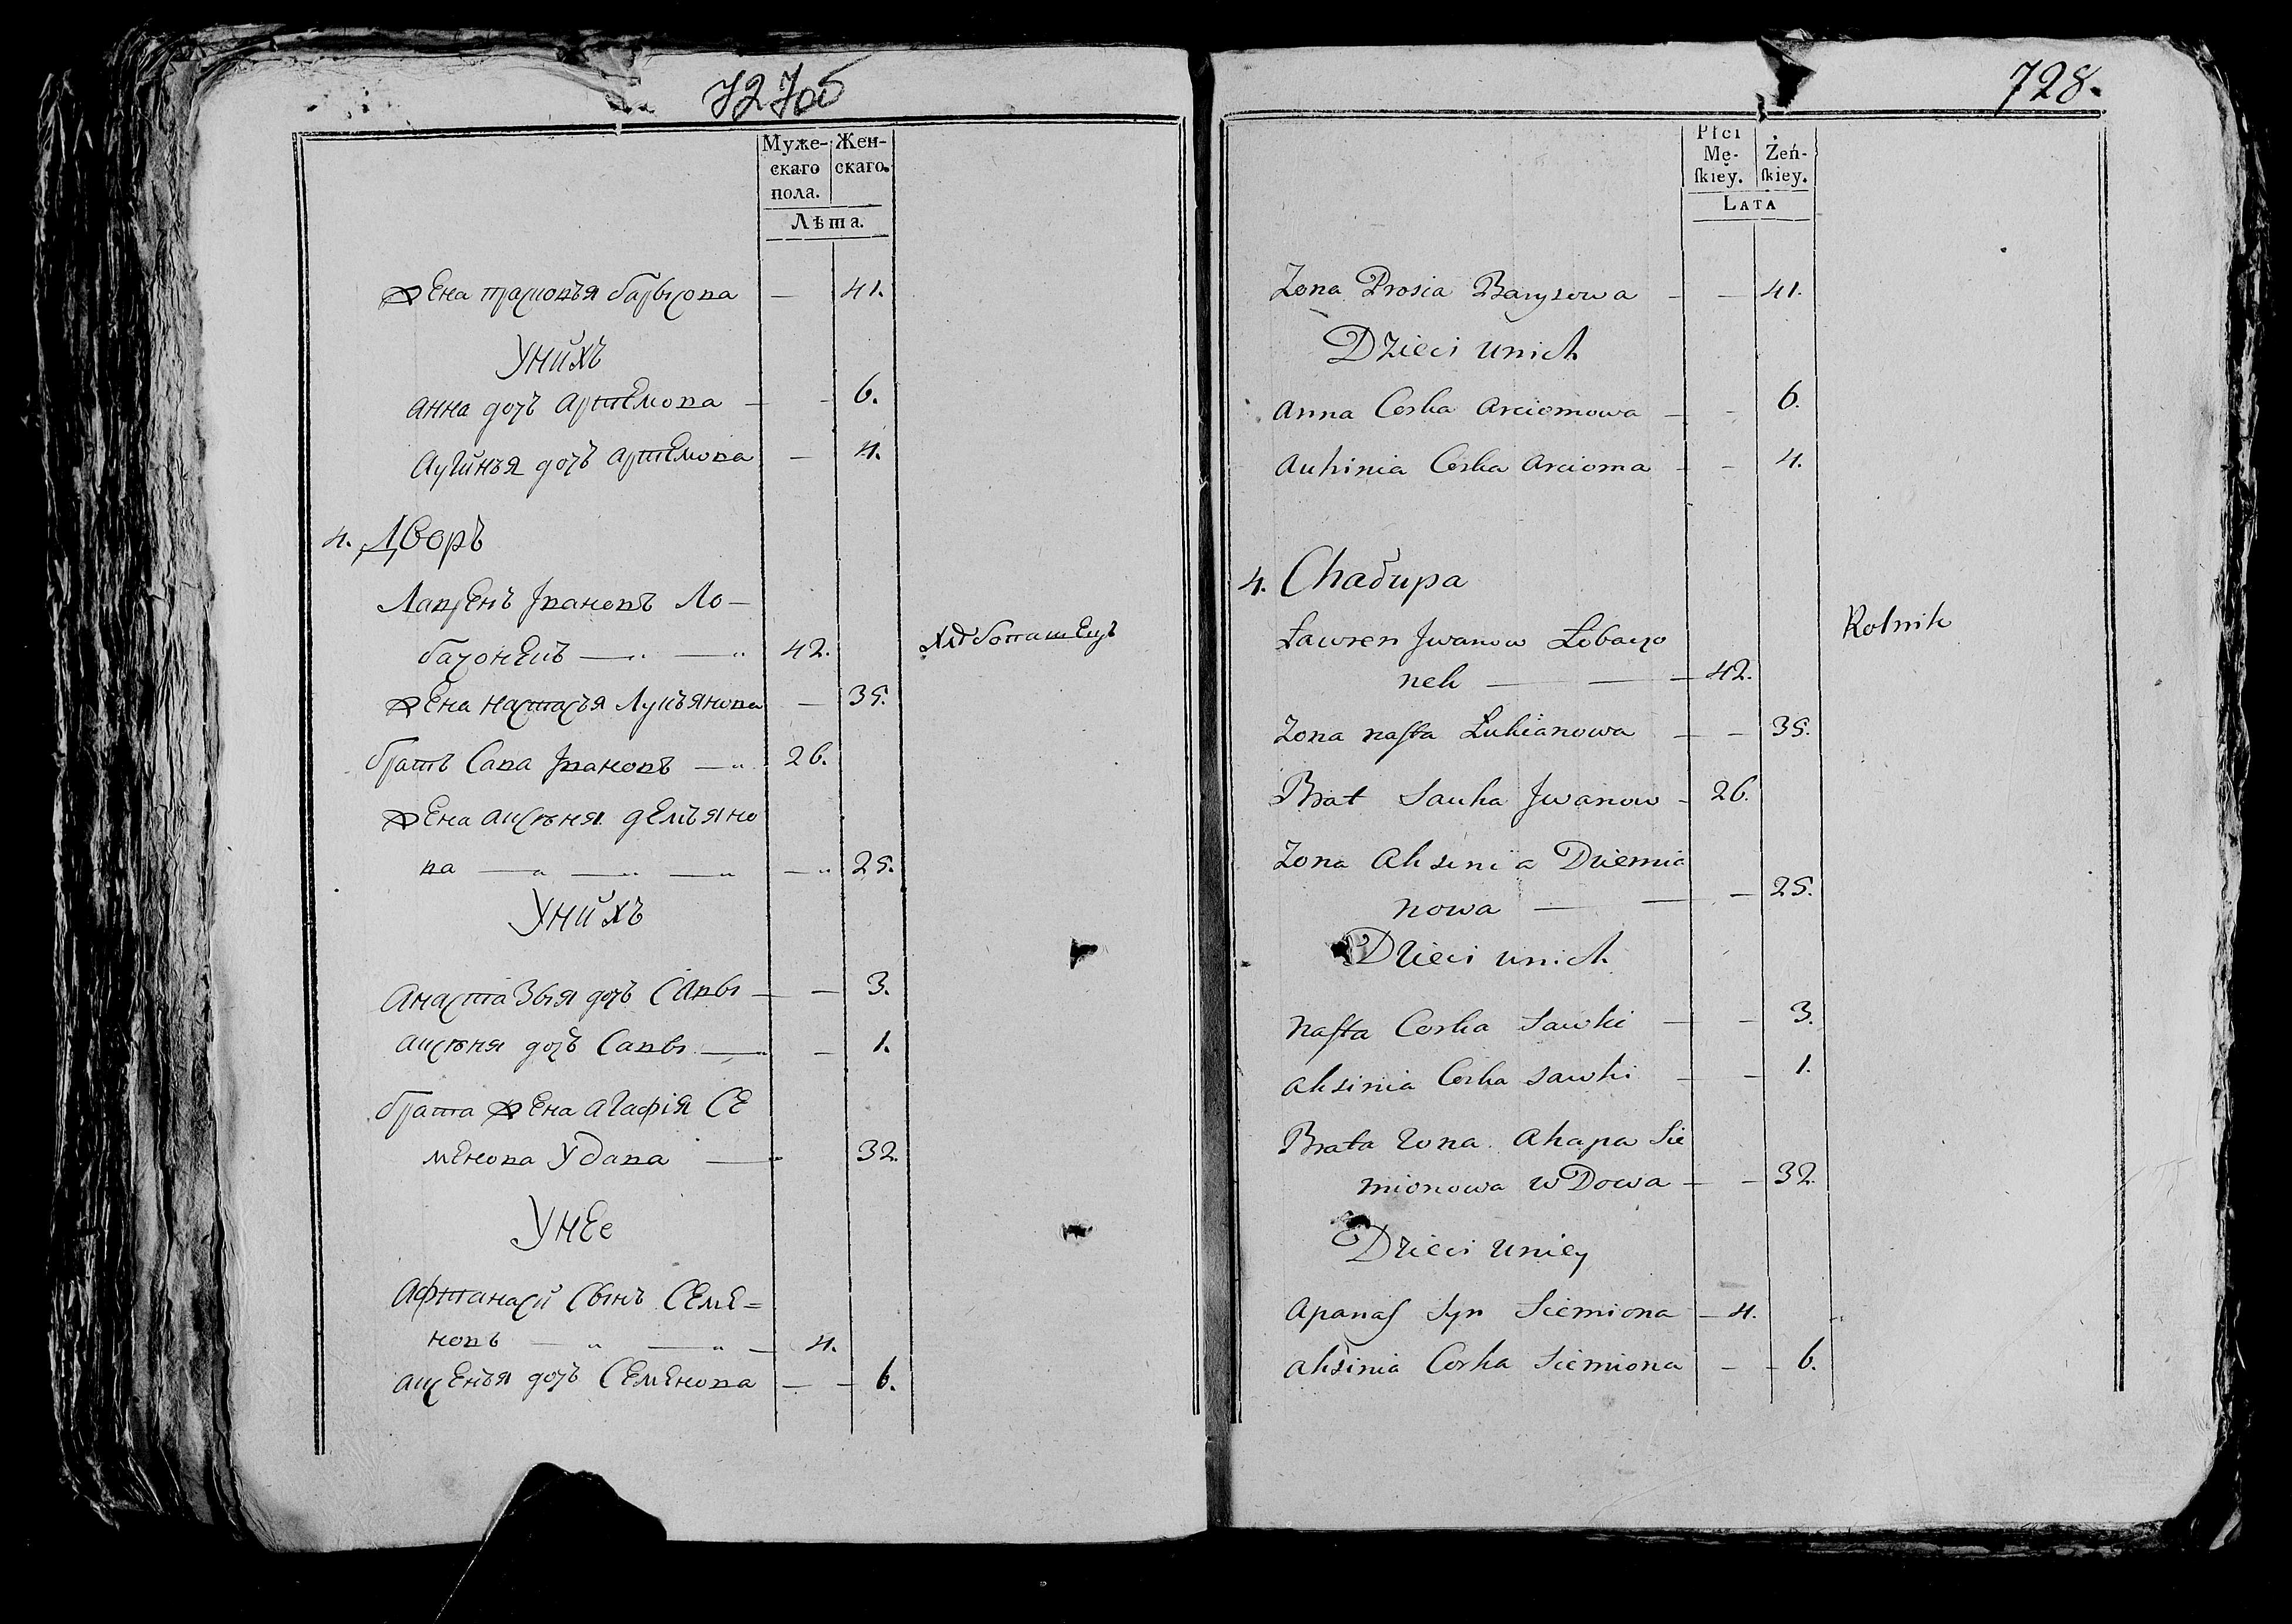 727об
Муже- Жен-
скаго скаго.
пола.
Лѣта.
Жена прасковья барысова — 41.
Унйхъ
Анна дочъ Артемова — - 6.
Аугинъя дочъ артемова — 4.
4. Дворъ
Лаврентъ Ивановъ Ло-
бачонекъ — — 42. хлѣбопашецъ
Жена настасъя Лукъянова — 35.
братъ Сава Ивановъ — 26.
Жена аксѣня демъяно
ва — — — — 25.
Унйхъ
Анастазыя дочъ Савы — — 3.
аксѣня дочъ Савы — - 1.
брата Жена Агафія Се
менова удава — 32.
Унее
Афтанасй Сынъ Семе=
новъ — — - 4.
аксенъя дочъ Семенова — - 6.
728.
Płci
Mę- Żeń-
ſkiey. ſkiey.
LATA
Zona Prosia Barysowa - — 41.
Dzieci unich
Anna Corka Arciomowa — - 6.
Auhinia Corka Arcioma - - 4.
4. Chałupa
Ławren Jwanow Łobaczo Rolnik
nek — — 42.
Zona naſta Łukianowa — — 35.
Brat Sauka Jwanow - 26.
Zona Aksinia Dziemia
nowa — — — 25.
Dzieci unich
Naſta Corka Sawki — - 3.
Aksinia Corka Sawki - - 1.
Brata Zona Ahapa Sie
mionowa wDowa — — 32.
Dzieci uniey
Apanaſ Syn Siemiona — 4.
Aksinia Corka Siemiona - - 6.